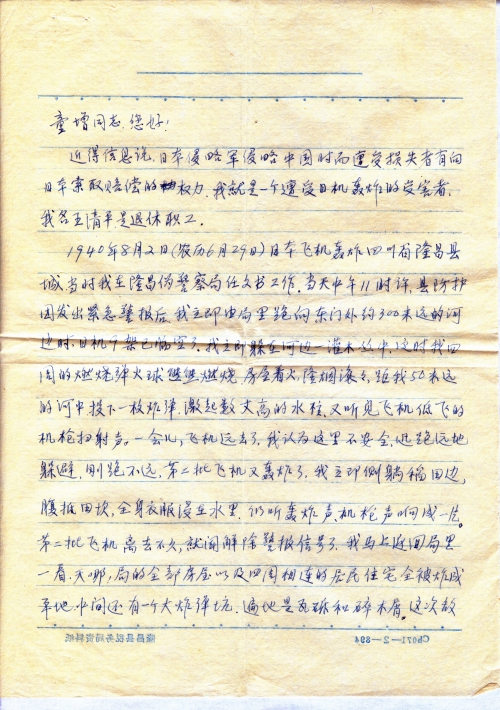 童增同志，您好！
近得信息说，日本侵略军侵略中国时而遭受损失者有向
日本索取赔偿的权力，我就是一个遭受日机轰炸的受害者，
我名王清平是退休职工。
1940年8月2日(农历6月29日)日本飞机轰炸四川省隆昌县
城当时我在隆昌伪警察局任文书工作。当天中午11时许，县防护
团发出紧急警报后，我立即由局里跑向东门外约300米远的河
边时，日机9架已临空了，我立即躲在河边一灌木丛中，这时我四
周的燃烧弹火球熊熊燃烧，房屋着火，隆烟滚滚，距我50米远
的河中投下一枚炸弹，激起数丈高的水柱，又听见飞机低飞的
机枪扫射声。一会儿，飞机远去了，我认为这里不安全，迅跑远地
躲避，刚跑不远，第二批飞机又轰炸了，我立即侧躺稻田边，
腹抵田坎，全身衣服浸在水里，仍听轰炸声、机枪声响成一片。
第二批飞机离去不久，就闻解除警报信号了，我马上返回局里
一看，天哪，局的全部房屋以及四周相连的居民住宅全被炸成
平地，中间还有一个大炸弹坑，遍地是瓦砾和碎木屑。这次敌
隆昌县税务局资料纸
Cb071—2—894